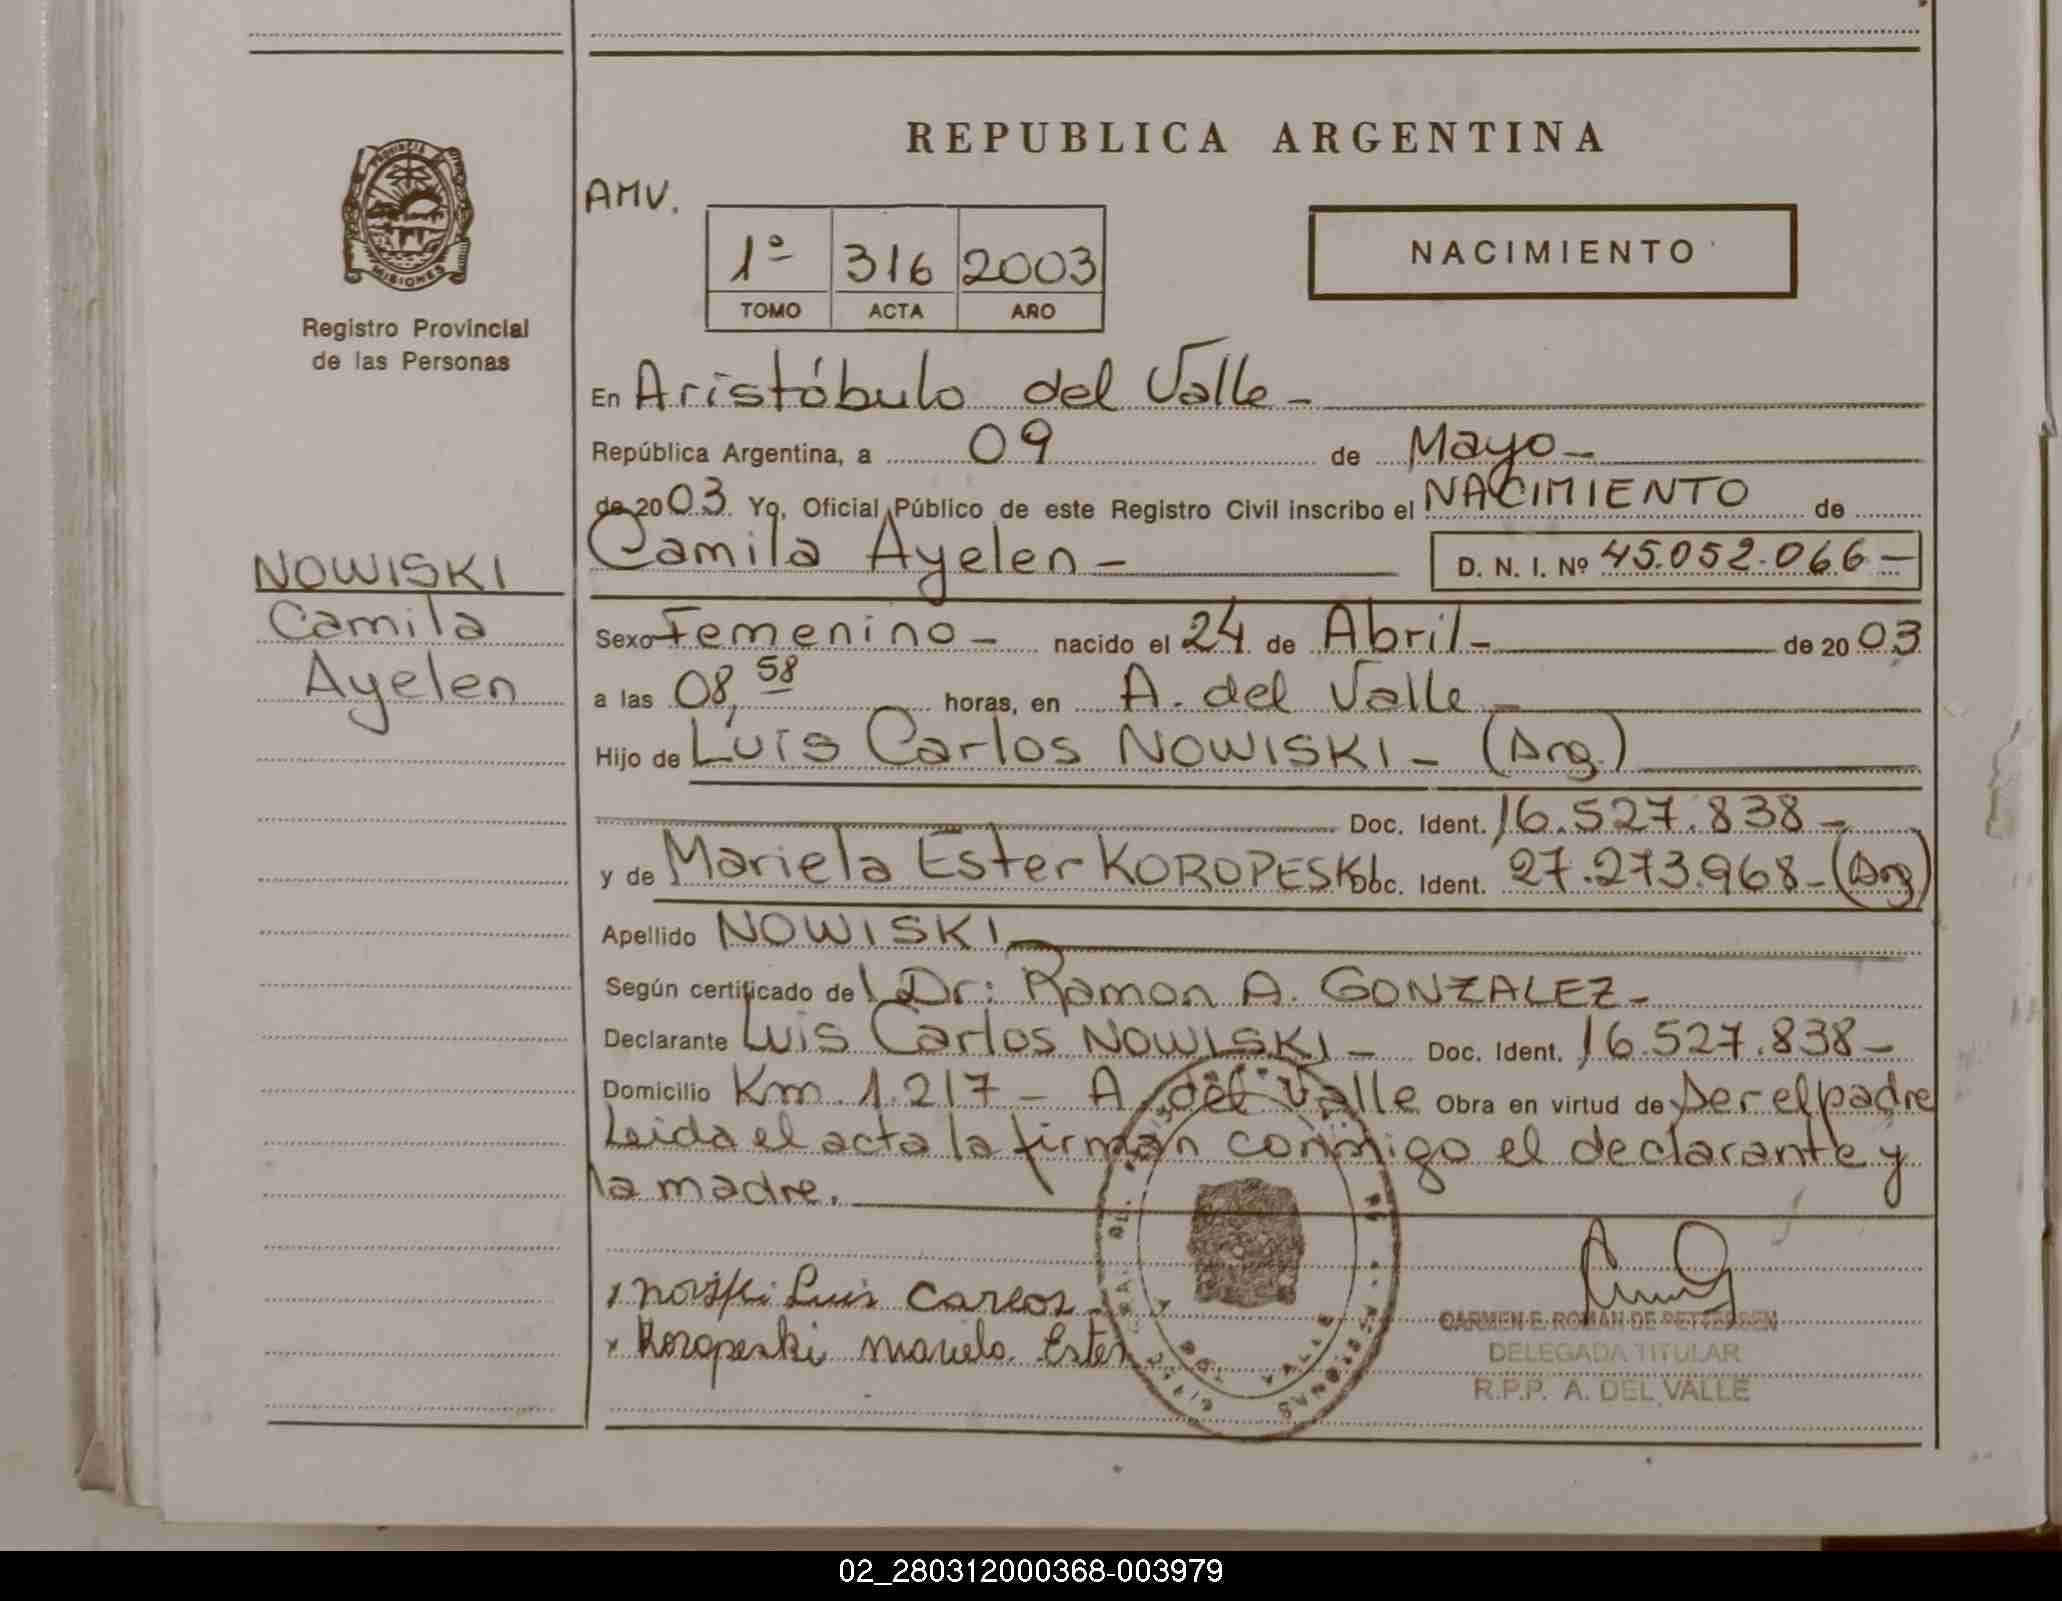 REPUBLICA ARGENTINA
PROVINCIA DE
MISIONES
Registro Provincial
de las Personas
AMV.
1º 316 2003
TOMO ACTA AÑO
NACIMIENTO
En Aristóbulo del Valle -
República Argentina, a 09 de Mayo -
de 2003. Yo, Oficial Público de este Registro Civil inscribo el NACIMIENTO de
Camila Ayelen - D. N. I. Nº 45.052.066 -
NOWISKI
Camila
Ayelen
Sexo Femenino - nacido el 24 de Abril - de 2003
a las 08,58 horas, en A. del Valle -
Hijo de Luis Carlos NOWISKI - (Arg.)
Doc. Ident. 16.527.838 -
y de Mariela Ester KOROPESKI Doc. Ident. 27.273.968 - (Arg)
Apellido NOWISKI
Según certificado del Dr: Ramon A. GONZALEZ -
Declarante Luis Carlos NOWISKI - Doc. Ident. 16.527.838 -
Domicilio Km. 1.217 - A. del Valle Obra en virtud de Ser el padre
Leida el acta la firman conmigo el declarante y
la madre.
x Koropeski Mariela Ester
CARMEN E. ROMAN DE PETTERSEN
DELEGADA TITULAR
R.P.P. A. DEL VALLE
02_280312000368-003979